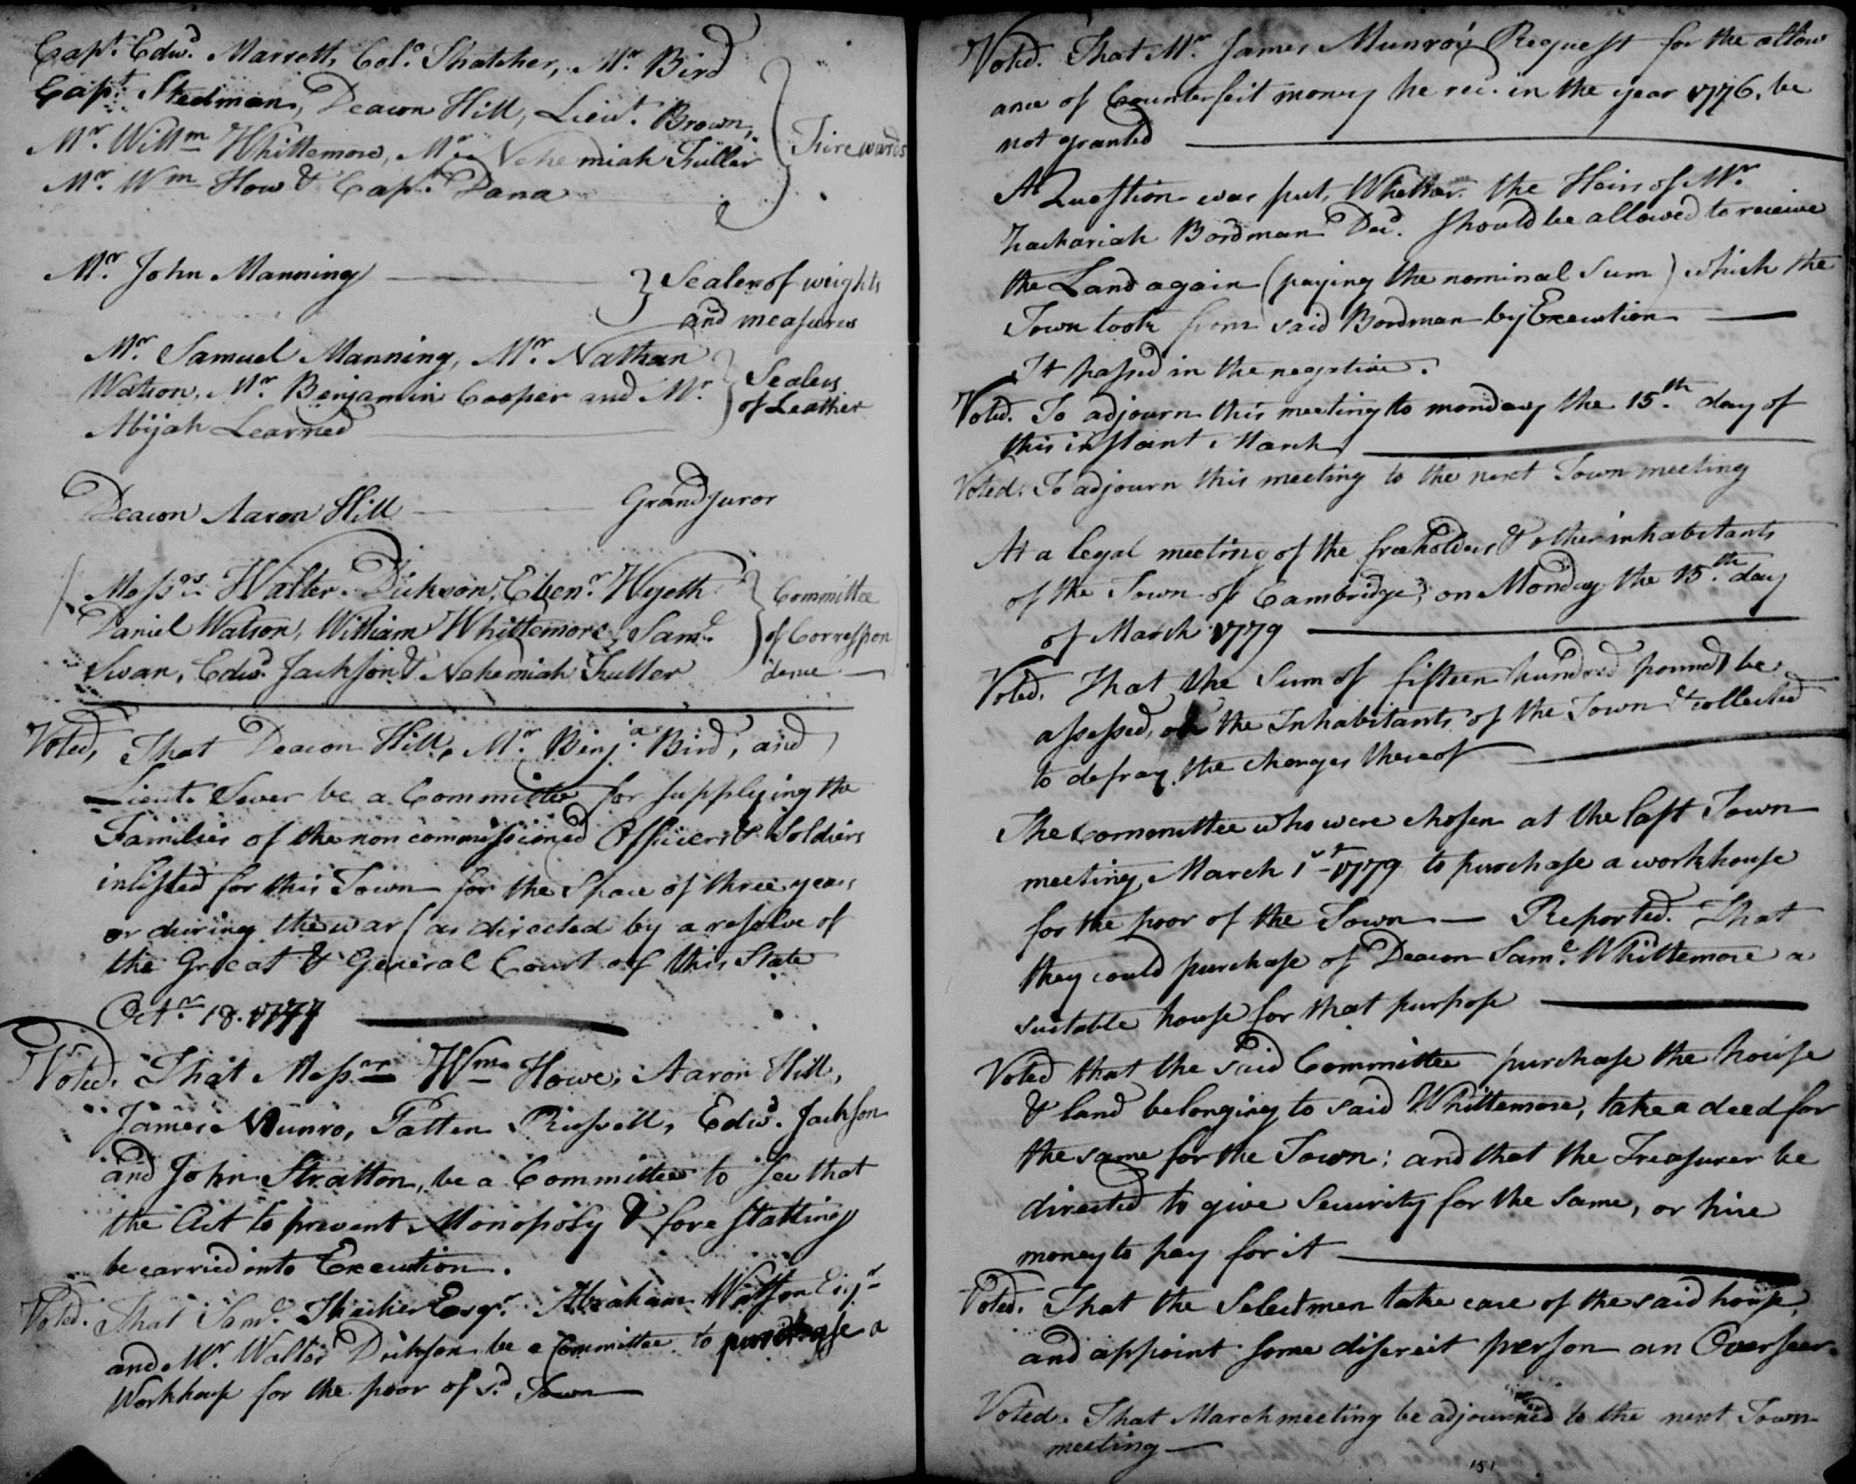 Capt. Edwd. Marrett, Colo. Thatcher, Mr. Bird
Capt. Stedman, Deacon Hill, Lieut. Brown,
Mr. Willm Whittemore, Mr. Nehemiah Fuller
Mr. Wm How & Capt. Dana
Firewards
Mr. John Manning
Sealer of weights
and measures
Mr. Samuel Manning, Mr. Nathan
Watson, Mr. Benjamin Cooper and Mr.
Abijah Learned
Sealers
of Leather
Deacon Aaron Hill
Grandjuror
Messrs. Walter Dickson, Ebenr. Wyeth
Daniel Watson, William Whittemore, Saml.
Swan, Edwd. Jackson & Nehemiah Fuller
Committee
of Correspon
dence
Voted, That Deacon Hill, Mr. Benja. Bird, and
Lieut. Sever be a Committee for supplying the
Families of the non commissioned Officers & Soldiers
inlisted for this Town for the Space of three years
or during the war (as directed by a resolve of
the Great & General Court of this State
Octr. 18. 1777
Voted. That Messrs. Wm. Howe, Aaron Hill,
James Munro, Patten Russell, Edwd. Jackson
and John Stratton, be a Committee to see that
the Act to prevent Monopoly & forestalling
be carried into Execution.
Voted. That Saml. Thatcher Esqr. Abraham Watson Esqr
and Mr. Walter Dickson be a Committee to purchase a
Workhouse for the poor of sd. Town
Voted. That Mr. James Munro's Request for the allow
ance of Counterfeit money he recd. in the year 1776, be
not granted
A Question was put, Whether the Heirs of Mr.
Zachariah Bordman Decd. should be allowed to receive
the Land again (paying the nominal Sum) which the
Town took from said Bordman by Execution
It passed in the negative.
Voted. To adjourn this meeting to monday the 15.th day of
this instant March
Voted. To adjourn this meeting to the next Town meeting
At a legal meeting of the freeholders & other inhabitants
of the Town of Cambridge, on Monday the 15.th day
of March 1779
Voted. That the Sum of fifteen hundred pounds be
assessed, on the Inhabitants of the Town & collected
to defray the charges thereof
The Committee who were chosen at the last Town
meeting March 1st 1779 to purchase a workhouse
for the poor of the Town — Reported. That
they could purchase of Deacon Saml. Whittemore a
suitable house for that purpose
Voted that the said Committee purchase the house
& land belonging to said Whittemore, take a deed for
the same for the Town; and that the Treasurer be
directed to give Security for the same, or hire
money to pay for it
Voted. That the Selectmen take care of the said house,
and appoint some discreet person an Overseer.
Voted. That March meeting be adjourned to the next Town
meeting
151